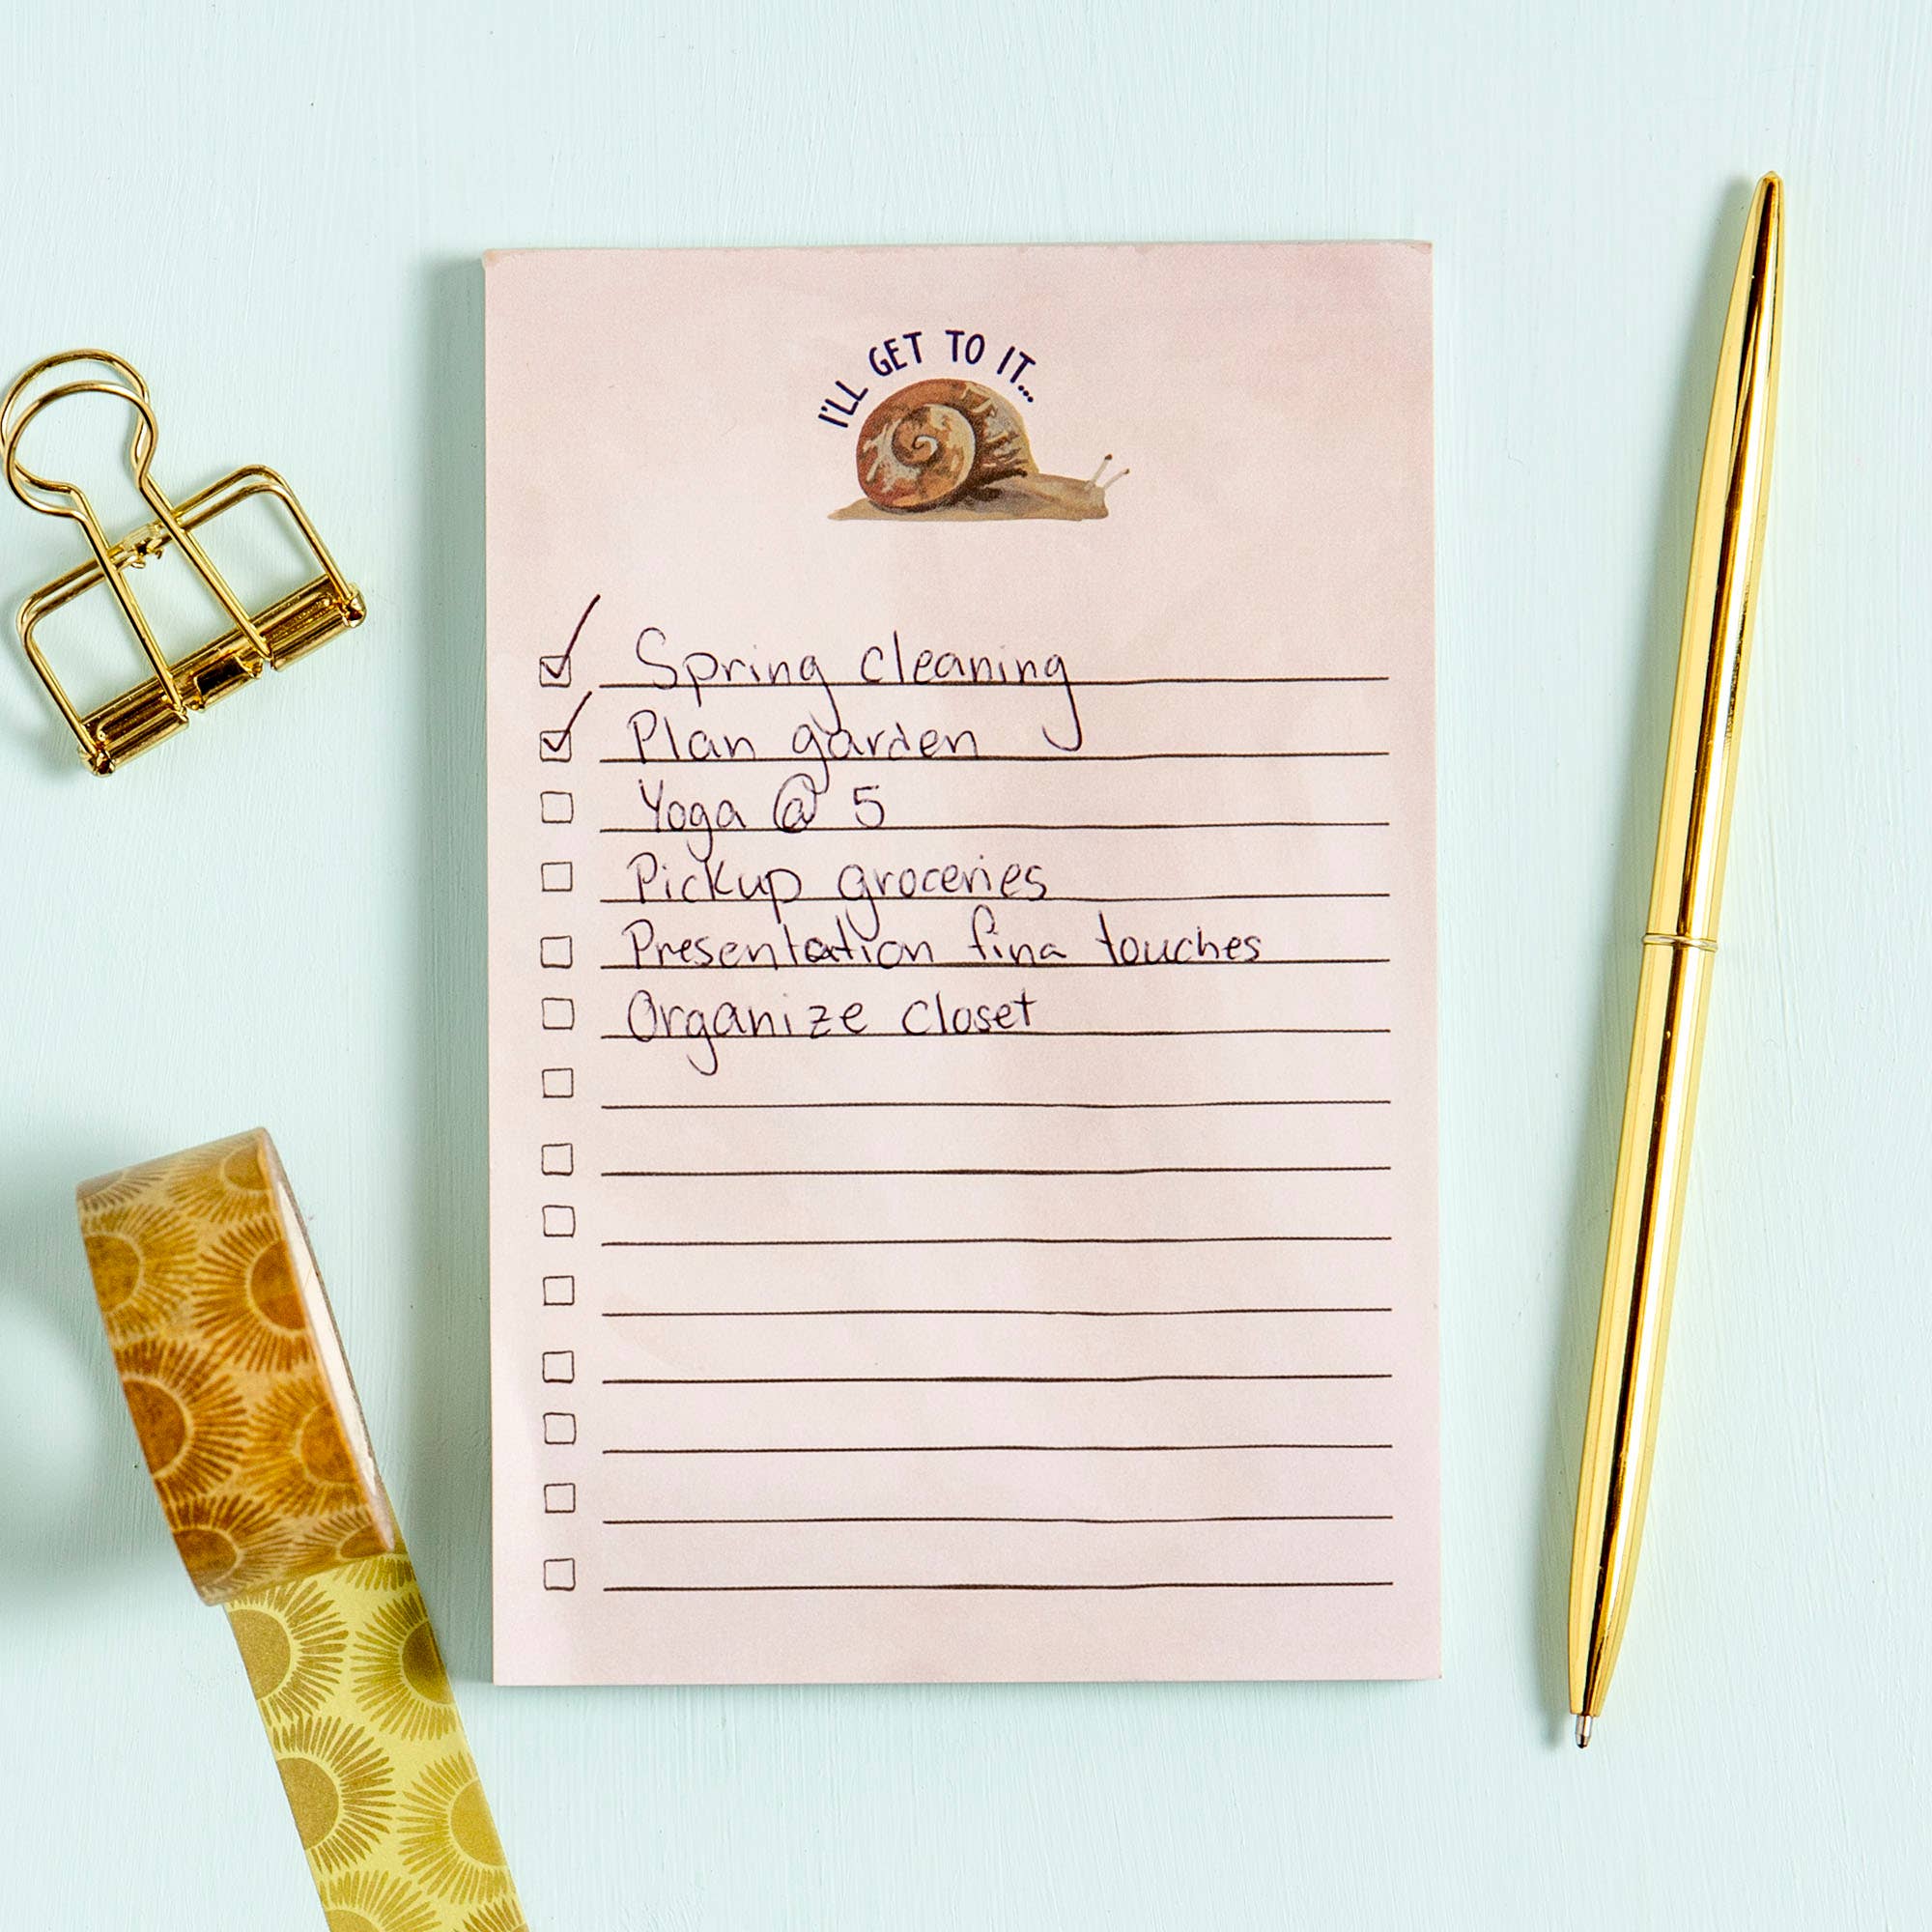 I'LL GET TO IT...
Spring cleaning
Plan garden
Yoga @ 5
Pickup groceries
Presentation fina touches
Organize closet